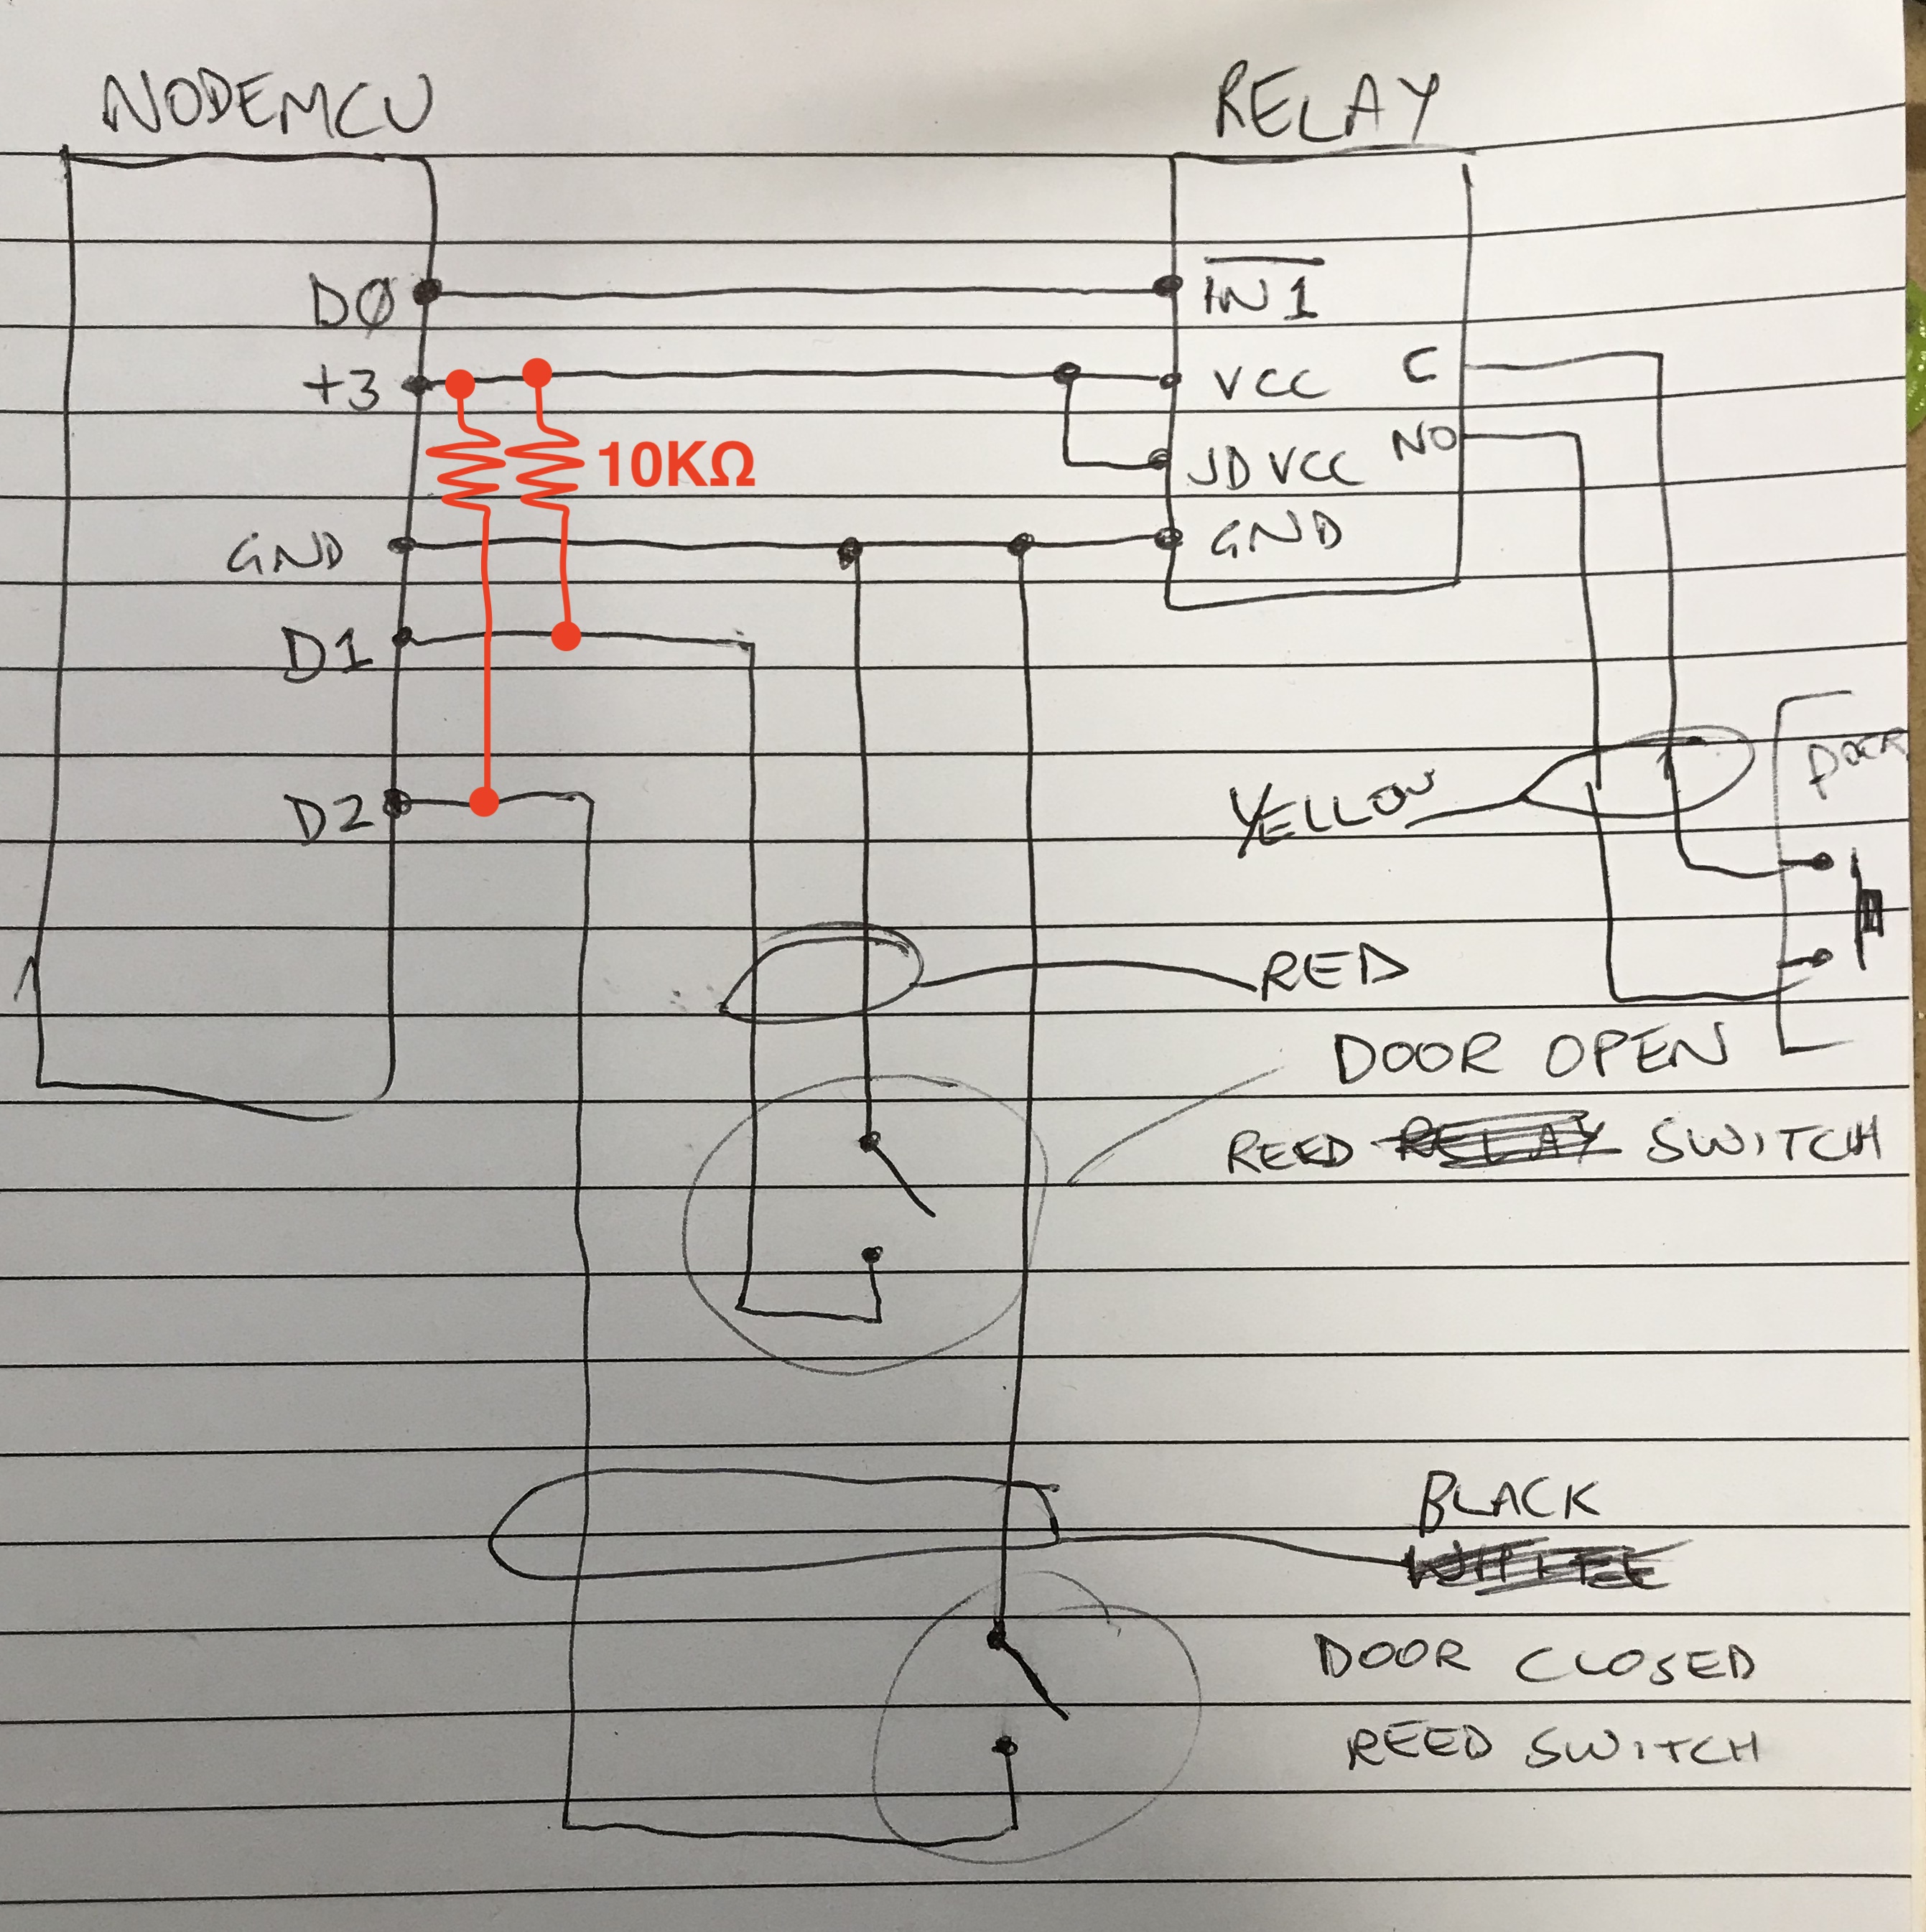 NODEMCU
RELAY
DØ
+3
GND
D1
D2
10KΩ
IN1
VCC
JDVCC
GND
C
NO
YELLOW
DOOR
RED
DOOR OPEN
REED RELAY SWITCH
BLACK
WHITE
DOOR CLOSED
REED SWITCH